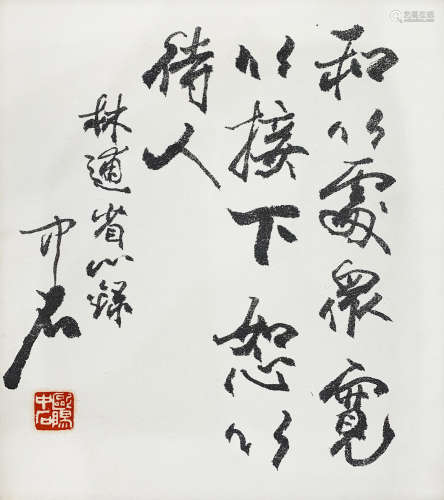 和以處眾寬
以接下恕以
待人
林逋省心錄
中石
歐陽中石